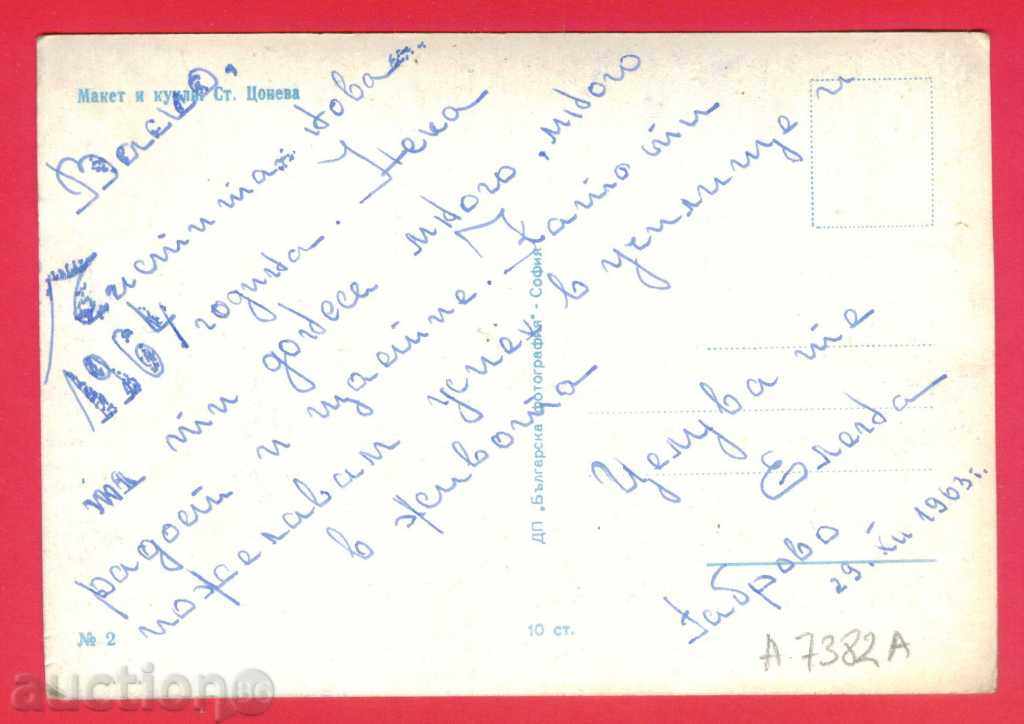 Макет и кукли Ст. Цонева
Честита Нова
1964 година. Нека
тя ти донесе много, много
радост и щастие. Като ти
пожелавам успех в училище и
в живота
Целува те
Елена
Габрово
29. XII 1963 г.
ДП „Българска фотография" - София
№ 2
10 ст.
A 7382A
auction 86